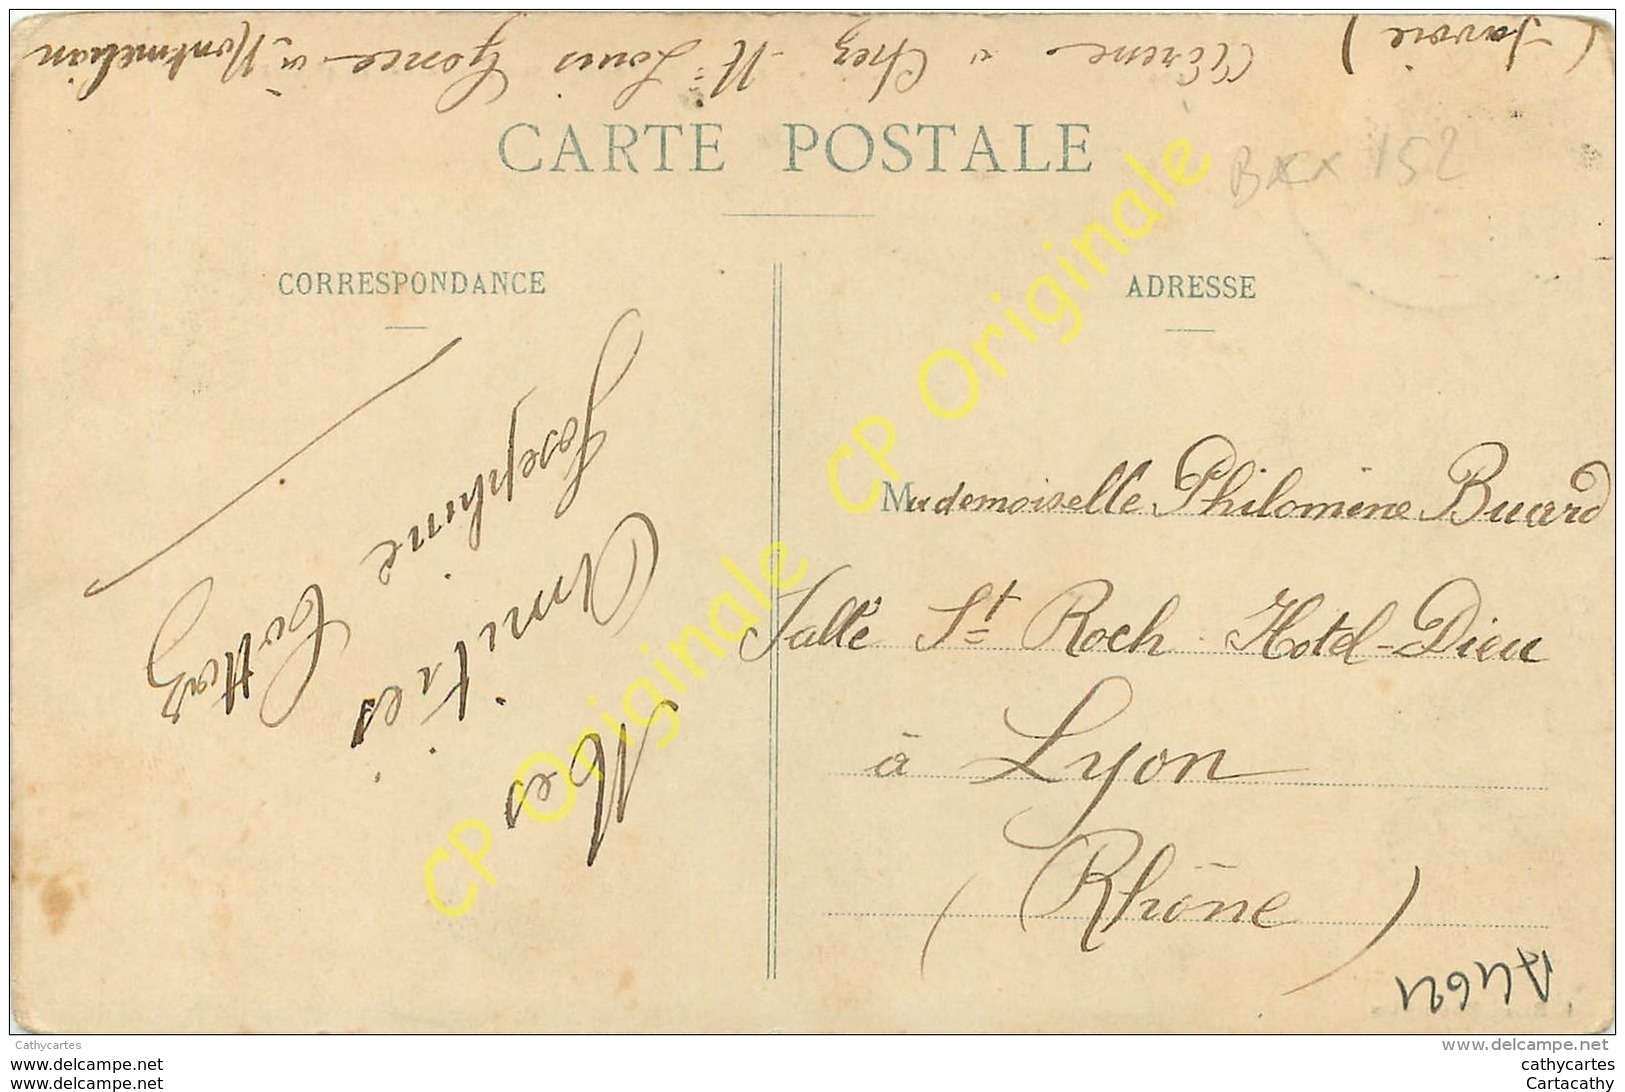 Élérene à Chez Mr Louis Gonce à Montmélian
(Savoie)
CARTE POSTALE
Bxx 152
CORRESPONDANCE
ADRESSE
Mes
Amitiés
Josephine
Mademoiselle Philomène Buard
Salle St Roch Hotel-Dieu
à Lyon
(Rhône)
CP Originale CP Originale
Cathycartes
www.delcampe.net
www.delcampe.net
www.delcampe.net
cathycartes
Cartacathy